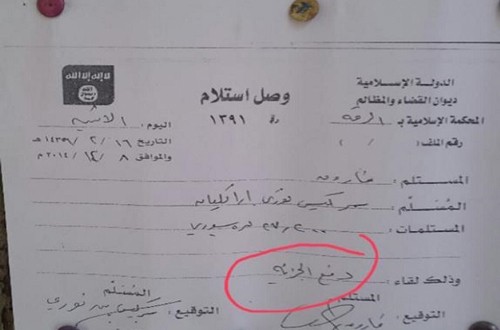 الدولة الإسلامية
ديوان القضاء والمظالم
المحكمة الإسلامية بـ الرقة
رقم الملف: / /
لا إله إلا الله
الله
رسول
محمد
وصل استلام
١٣٩١
اليوم: الاثنين
التاريخ ١٦ / ٢ / ١٤٣٦ هـ
والموافق ٨ / ١٢ / ٢٠١٤ م
المستلم: فاروق
المُسَلّم: سركيس
المستلمات: سوري
وذلك لقاء: دفع الجزية
المستلم
المُسَلّم
التوقيع: فاروق
التوقيع: سركيس نوري